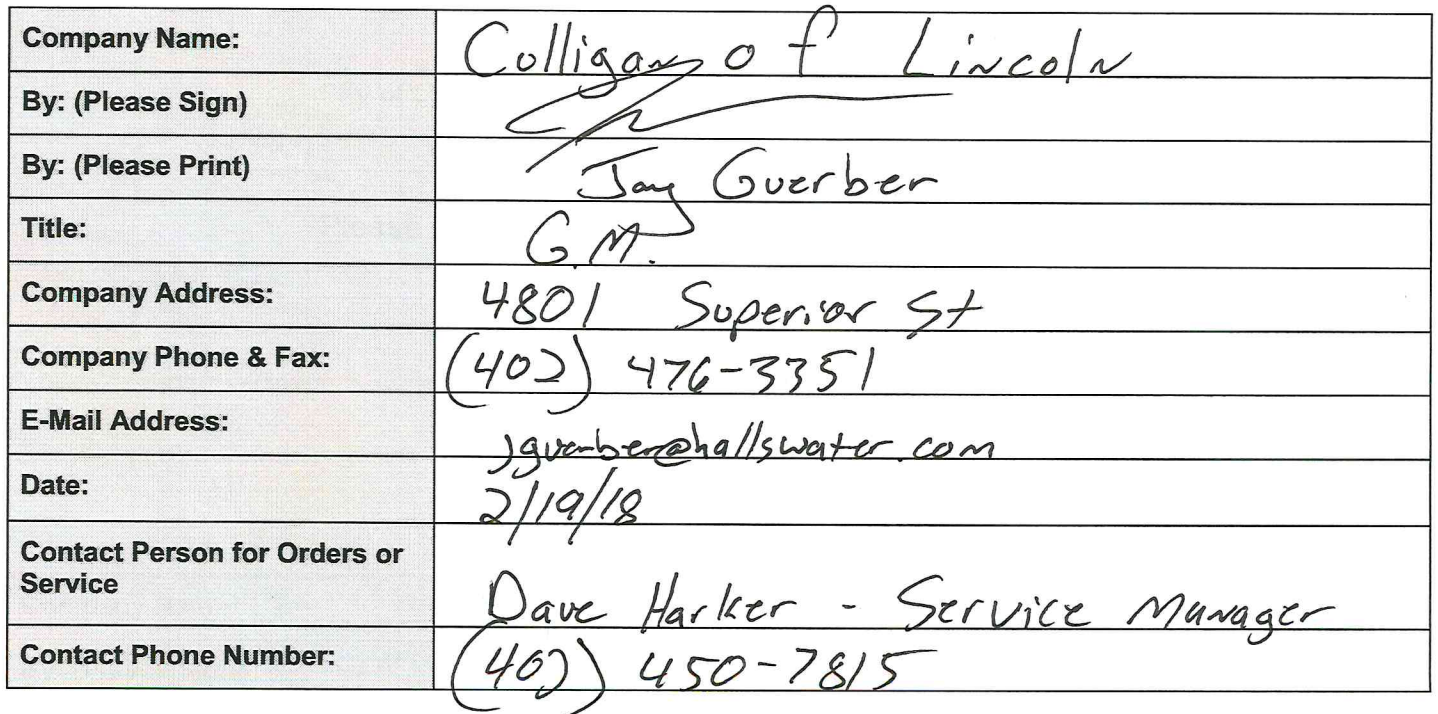 Company Name: Culligan of Lincoln
By: (Please Sign)
By: (Please Print) Jay Guerber
Title: G.M.
Company Address: 4801 Superior St
Company Phone & Fax: (402) 476-3351
E-Mail Address: jguerber@hallswater.com
Date: 2/19/18
Contact Person for Orders or
Service Dave Harker - Service Manager
Contact Phone Number: (402) 450-7815